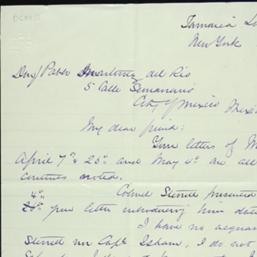 Jamaica L
New York
Don Pablo Martinez del Rio
5 Calle Semanario
City of Mexico Mexi
My dear friend:
Your letters of M
April 7th 25th and May 4th are all
contents noted.
Colonel Sterrett presented
4th
your letter introducing him date
I have no acquain
Sterrett nor Capt Isham, I do not